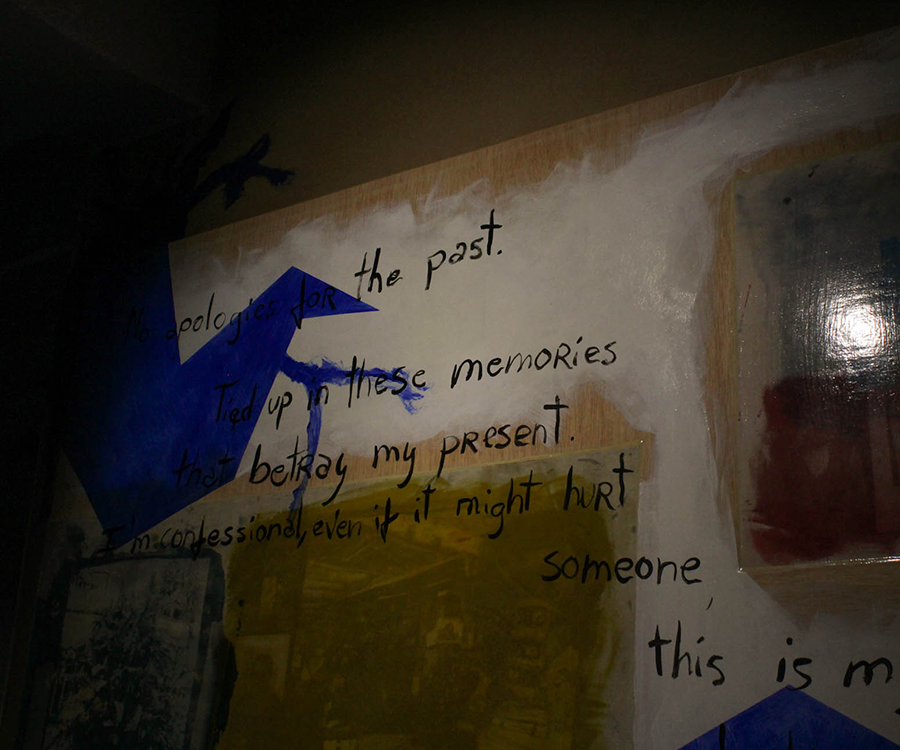 No apologies for the past.
Tied up in these memories
that betray my present.
I'm confessional, even if it might hurt
someone,
this is m